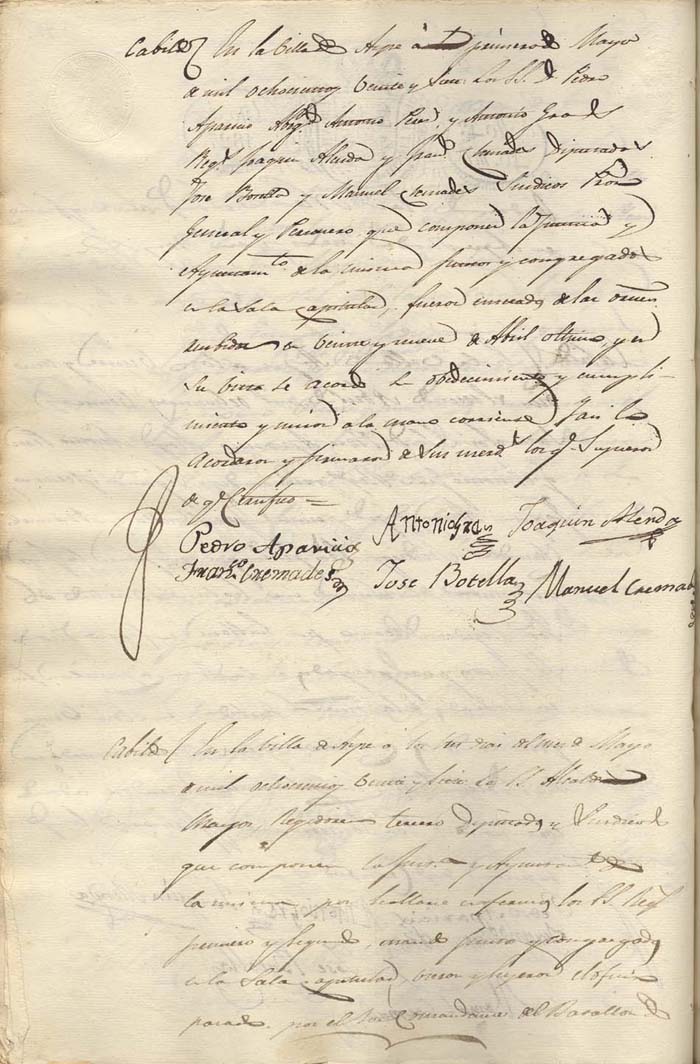 Cabildo En la Villa de Aspe á primero de Mayo
de mil ochocientos veinte y los SS. Dn Pedro
Aparicio Antonio y Antonio Gras
Regs Joaquin Alenda y Franco Cremades Diputados
Jose Botella y Manuel Cremades Sindicos Pror
General y Personero que componen la Justicia y
Ayuntamto de la misma juntos y congregados
en la Sala Capitular, fueron enterados de las ordenes
recibidas en veinte y nueve de Abril ultimo, y en
su vista se acordó su obedecimiento y cumpli
miento y a la mano corriente Y asi lo
Acordaron y firmaron de sus mercds los qe supieron
de qe Certifico =
Pedro Aparicio Antonio Gras Joaquin Alenda
Franco Cremades Jose Botella Manuel Cremades
Cabildo En la Villa de Aspe á los tres dias del mes de Mayo
de mil ochocientos veinte y los SS. Alcalde
Mayor, Regidor tercero Diputados y Sindicos
que componen la Jusa y Ayuntamto de
la misma por hallarse enfermos los SS. Regs
primero y segundo, estando juntos y congregados
en la Sala capitular, vieron y leyeron el oficio
pasado por el Sor Comandante del Batallon de